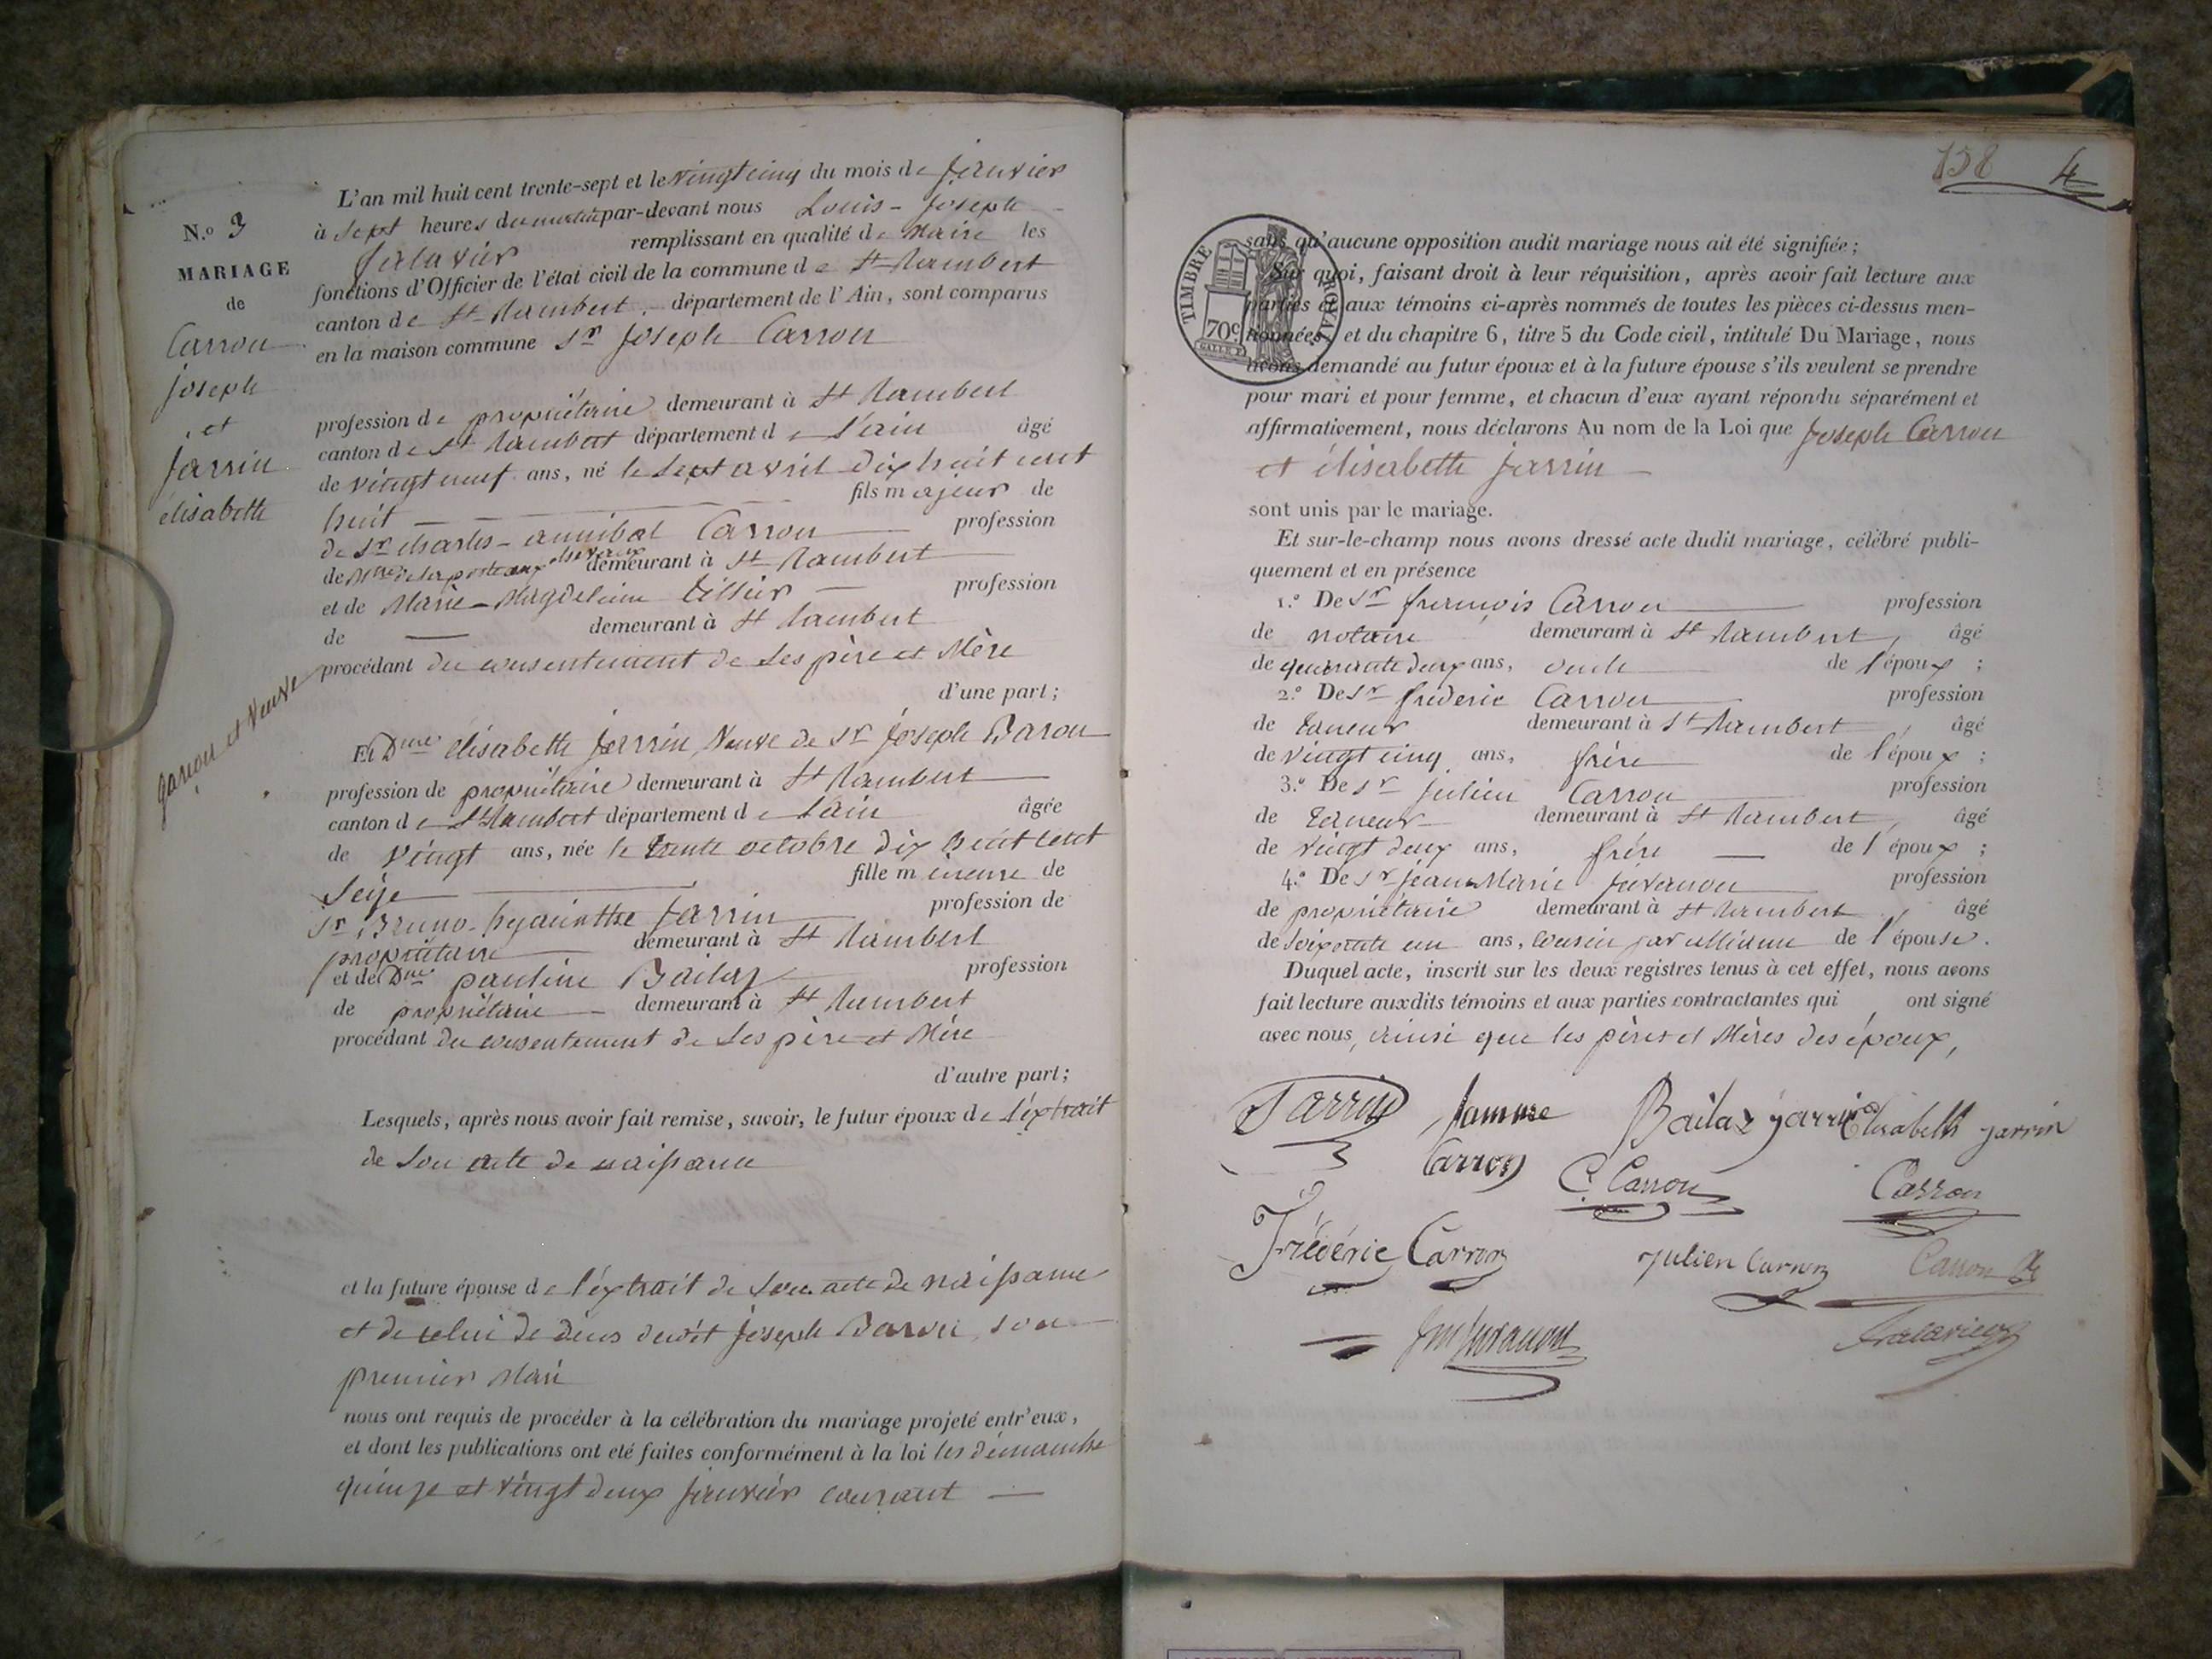 N.o 3
MARIAGE
de
Carron
joseph
et
jarrin
élisabeth
garçon et veuve
L'an mil huit cent trente-sept et le vingt cinq du mois de janvier
à sept heures du matin par-devant nous Louis-Joseph
falavier remplissant en qualité de Maire les
fonctions d'Officier de l'état civil de la commune de St Rambert
canton de St Rambert, département de l'Ain, sont comparus
en la maison commune Sr Joseph Carron
profession de propriétaire demeurant à St Rambert
canton de St Rambert département de l'ain âgé
de vingt neuf ans, né le sept avril dix huit cent
huit fils majeur de
de Sr Charles-annibal Carron profession
de Mtre de la poste aux chevaux demeurant à St Rambert
et de Marie-Magdeleine tissier profession
de — demeurant à St Rambert
procédant du consentement de ses père et Mère
d'une part;
Et Dme élisabeth jarrin, Veuve de Sr joseph Baron
profession de propriétaire demeurant à St Rambert
canton de St Rambert département de l'ain âgée
de vingt ans, née le trente octobre dix huit cent
Seize fille mineure de
Sr Bruno-hyacinthe jarrin profession de
propriétaire demeurant à St Rambert
et de Dme pauline Bailaz profession
de propriétaire demeurant à St Rambert
procédant du consentement de ses père et Mère
d'autre part;
Lesquels, après nous avoir fait remise, savoir, le futur époux de l'éxtrait
de son acte de naissance
et la future épouse de l'éxtrait de son acte de naissance
et de celui de décès dudit joseph Baron, son
premier Mari
nous ont requis de procéder à la célébration du mariage projeté entr'eux,
et dont les publications ont été faites conformément à la loi les dimanche
quinze et vingt deux janvier courant —
138 4
TIMBRE ROYAL
70c
sans qu'aucune opposition audit mariage nous ait été signifiée;
Sur quoi, faisant droit à leur réquisition, après avoir fait lecture aux
parties et aux témoins ci-après nommés de toutes les pièces ci-dessus men-
tionnées, et du chapitre 6, titre 5 du Code civil, intitulé Du Mariage, nous
avons demandé au futur époux et à la future épouse s'ils veulent se prendre
pour mari et pour femme, et chacun d'eux ayant répondu séparément et
affirmativement, nous déclarons Au nom de la Loi que Joseph Carron
et élisabeth jarrin
sont unis par le mariage.
Et sur-le-champ nous avons dressé acte dudit mariage, célébré publi-
quement et en présence
1.o De Sr françois Carron profession
de notaire demeurant à St Rambert, âgé
de quarante deux ans, oncle de l'époux;
2.o De Sr frederic Carron profession
de taneur demeurant à St Rambert, âgé
de vingt cinq ans, frère de l'époux;
3.o De Sr julien Carron profession
de taneur demeurant à St Rambert, âgé
de vingt deux ans, frère de l'époux;
4.o De Sr jean-Marie juvanon profession
de propriétaire demeurant à St Rambert, âgé
de soixante un ans, cousin par alliance de l'épouse.
Duquel acte, inscrit sur les deux registres tenus à cet effet, nous avons
fait lecture auxdits témoins et aux parties contractantes qui ont signé
avec nous, ainsi que les pères et Mères des époux,
Jarrin Bailaz jarrin Elisabeth jarrin
Carron C. Carron Carron
Fréderic Carron Julien Carron Carron
Jm juvanon falavier